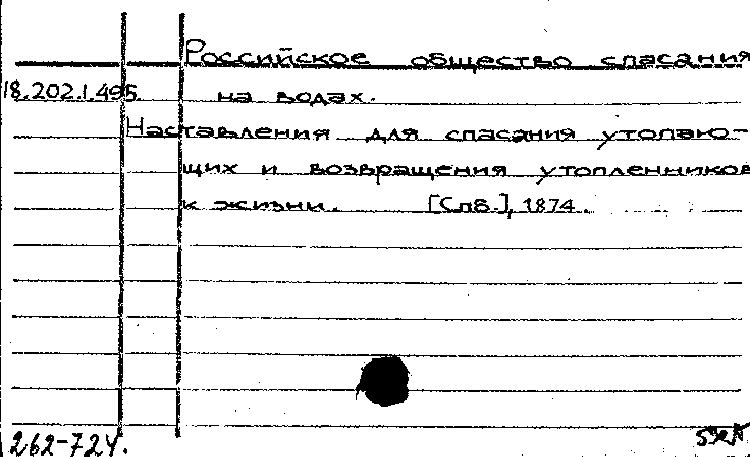 Российское общество спасания
18.202.1.495 на водах.
Наставления для спасания утопаю-
щих и возвращения утопленников
к жизни. [Спб.], 1874.
262-724.